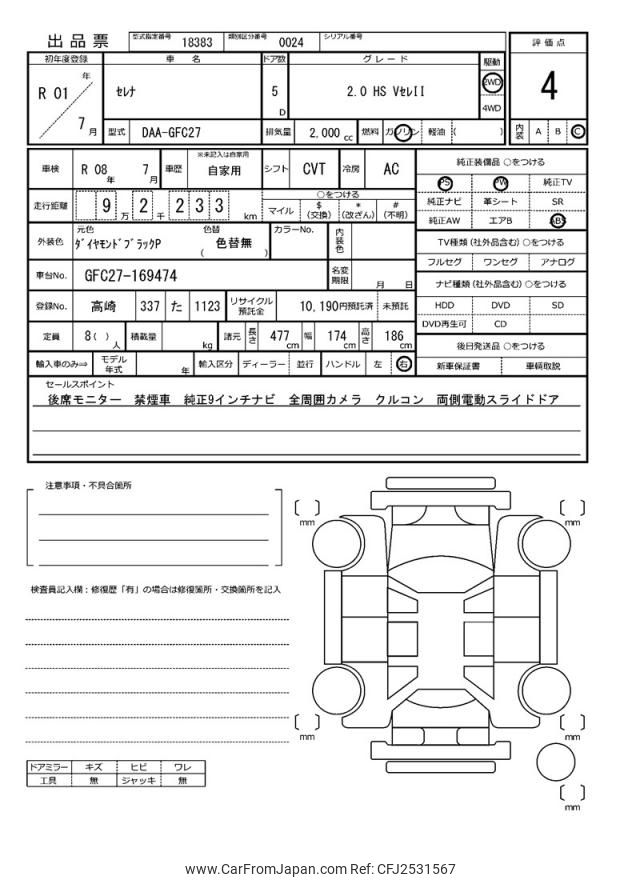 出品票 型式指定番号 18383 類別区分番号 0024 シリアル番号
初年度登録 車名 ドア数 グレード 駆動 評価点
R 01 年 7 月 セレナ 5 D 2.0 HS VセレII 2WD 4WD 4
型式 DAA-GFC27 排気量 2,000 cc 燃料 ガソリン 軽油 ( ) 内装 A B C
車検 R 08 年 7 月 車歴 ※未記入は自家用 自家用 シフト CVT 冷房 AC
純正装備品 ○をつける
PS PW 純正TV
純正ナビ 革シート SR
純正AW エアB ABS
走行距離 9 万 2 千 2 3 3 km ○をつける
マイル $ (交換) * (改ざん) # (不明)
外装色 元色 ダイヤモンドブラックP 色替 色替無 ( ) カラーNo. 内装色
TV種類 (社外品含む) ○をつける
フルセグ ワンセグ アナログ
車台No. GFC27-169474 名変期限 月 日
ナビ種類 (社外品含む) ○をつける
HDD DVD SD
DVD再生可 CD
登録No. 高崎 337 た 1123 リサイクル預託金 10,190円預託済 未預託
定員 8 ( ) 人 積載量 kg 諸元 長さ 477 cm 幅 174 cm 高さ 186 cm
後日発送品 ○をつける
新車保証書 車輌取説
輸入車のみ⇒ モデル年式 年 輸入区分 ディーラー 並行 ハンドル 左 右
セールスポイント
後席モニター 禁煙車 純正9インチナビ 全周囲カメラ クルコン 両側電動スライドドア
注意事項・不具合箇所
検査員記入欄：修復歴「有」の場合は修復箇所・交換箇所を記入
mm
mm
mm
mm
mm
ドアミラー キズ ヒビ ワレ
工具 無 ジャッキ 無
www.CarFromJapan.com Ref: CFJ2531567